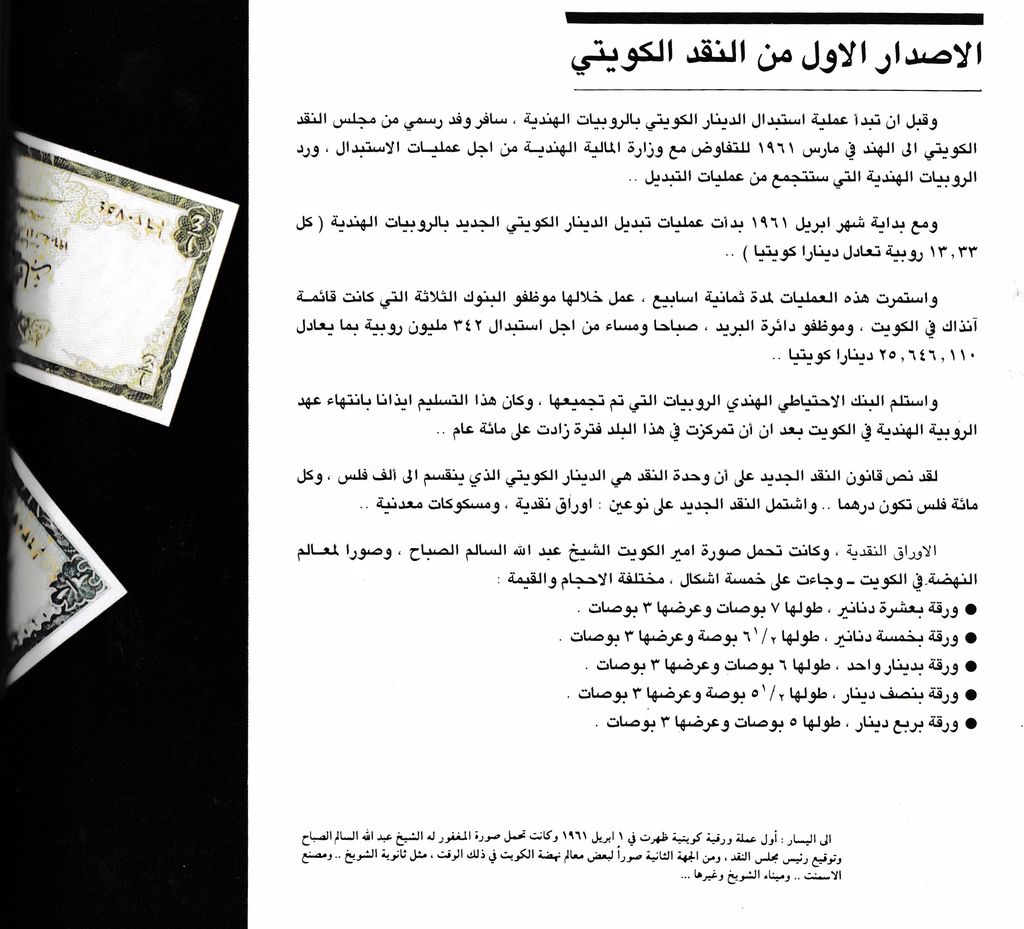 الاصدار الاول من النقد الكويتي
وقبل ان تبدأ عملية استبدال الدينار الكويتي بالروبيات الهندية ، سافر وفد رسمي من مجلس النقد
الكويتي الى الهند في مارس ١٩٦١ للتفاوض مع وزارة المالية الهندية من اجل عمليات الاستبدال ، ورد
الروبيات الهندية التي ستتجمع من عمليات التبديل ..
ومع بداية شهر ابريل ١٩٦١ بدأت عمليات تبديل الدينار الكويتي الجديد بالروبيات الهندية ( كل
١٣,٣٣ روبية تعادل دينارا كويتيا ) ..
واستمرت هذه العمليات لمدة ثمانية اسابيع ، عمل خلالها موظفو البنوك الثلاثة التي كانت قائمة
آنذاك في الكويت ، وموظفو دائرة البريد ، صباحا ومساء من اجل استبدال ٣٤٢ مليون روبية بما يعادل
٢٥,٦٤٦,١١٠ دينارا كويتيا ..
واستلم البنك الاحتياطي الهندي الروبيات التي تم تجميعها ، وكان هذا التسليم ايذانا بانتهاء عهد
الروبية الهندية في الكويت بعد ان أن تمركزت في هذا البلد فترة زادت على مائة عام ..
لقد نص قانون النقد الجديد على أن وحدة النقد هي الدينار الكويتي الذي ينقسم الى ألف فلس ، وكل
مائة فلس تكون درهما .. واشتمل النقد الجديد على نوعين : اوراق نقدية ، ومسكوكات معدنية ..
الاوراق النقدية ، وكانت تحمل صورة امير الكويت الشيخ عبد الله السالم الصباح ، وصورا لمعالم
النهضة في الكويت - وجاءت على خمسة اشكال ، مختلفة الاحجام والقيمة :
● ورقة بعشرة دنانير ، طولها ٧ بوصات وعرضها ٣ بوصات .
● ورقة بخمسة دنانير ، طولها ٦١/٢ بوصة وعرضها ٣ بوصات .
● ورقة بدينار واحد ، طولها ٦ بوصات وعرضها ٣ بوصات .
● ورقة بنصف دينار ، طولها ٥١/٢ بوصة وعرضها ٣ بوصات .
● ورقة بربع دينار ، طولها ٥ بوصات وعرضها ٣ بوصات .
الى اليسار : أول عملة ورقية كويتية ظهرت في ١ ابريل ١٩٦١ وكانت تحمل صورة المغفور له الشيخ عبد الله السالم الصباح
وتوقيع رئيس مجلس النقد ، ومن الجهة الثانية صوراً لبعض معالم نهضة الكويت في ذلك الوقت ، مثل ثانوية الشويخ .. ومصنع
الاسمنت .. وميناء الشويخ وغيرها ...